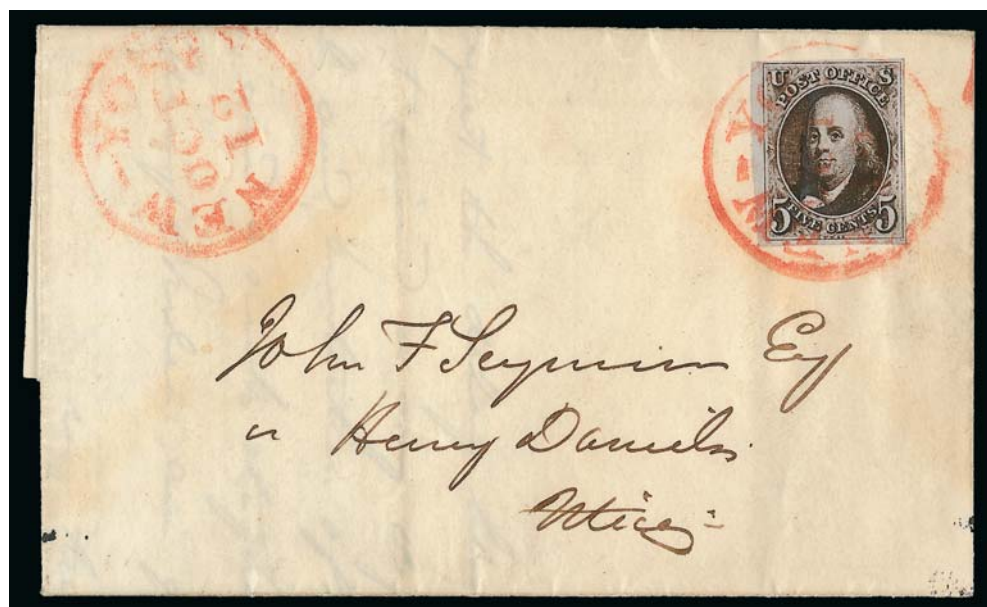 NEW-YO
12
OCT
U S
POST OFFICE
5 FIVE CENTS 5
NEW-YO
John F Seymour Esq
or Henry Daniels.
Utica